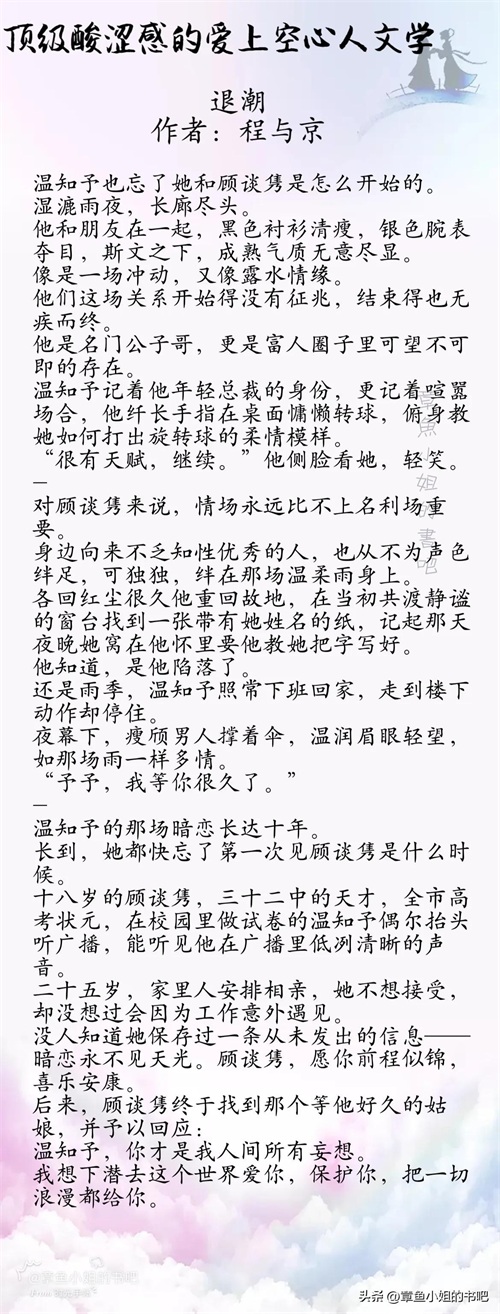 顶级酸涩感的爱上空心人文学
退潮
作者：程与京
温知予也忘了她和顾谈隽是怎么开始的。
湿漉雨夜，长廊尽头。
他和朋友在一起，黑色衬衫清瘦，银色腕表
夺目，斯文之下，成熟气质无意尽显。
像是一场冲动，又像露水情缘。
他们这场关系开始得没有征兆，结束得也无
疾而终。
他是名门公子哥，更是富人圈子里可望不可
即的存在。
温知予记着他年轻总裁的身份，更记着喧嚣
场合，他纤长手指在桌面慵懒转球，俯身教
她如何打出旋转球的柔情模样。
“很有天赋，继续。”他侧脸看她，轻笑。
—
对顾谈隽来说，情场永远比不上名利场重
要。
身边向来不乏知性优秀的人，也从不为声色
绊足，可独独，绊在那场温柔雨身上。
各回红尘很久他重回故地，在当初共渡静谧
的窗台找到一张带有她姓名的纸，记起那天
夜晚她窝在他怀里要他教她把字写好。
他知道，是他陷落了。
还是雨季，温知予照常下班回家，走到楼下
动作却停住。
夜幕下，瘦颀男人撑着伞，温润眉眼轻望，
如那场雨一样多情。
“予予，我等你很久了。”
—
温知予的那场暗恋长达十年。
长到，她都快忘了第一次见顾谈隽是什么时
候。
十八岁的顾谈隽，三十二中的天才，全市高
考状元，在校园里做试卷的温知予偶尔抬头
听广播，能听见他在广播里低冽清晰的声
音。
二十五岁，家里人安排相亲，她不想接受，
却没想过会因为工作意外遇见。
没人知道她保存过一条从未发出的信息——
暗恋永不见天光。顾谈隽，愿你前程似锦，
喜乐安康。
后来，顾谈隽终于找到那个等他好久的姑
娘，并予以回应：
温知予，你才是我人间所有妄想。
我想下潜去这个世界爱你，保护你，把一切
浪漫都给你。
章魚小姐的書吧
@章鱼小姐的书吧
头条 @章鱼小姐的书吧